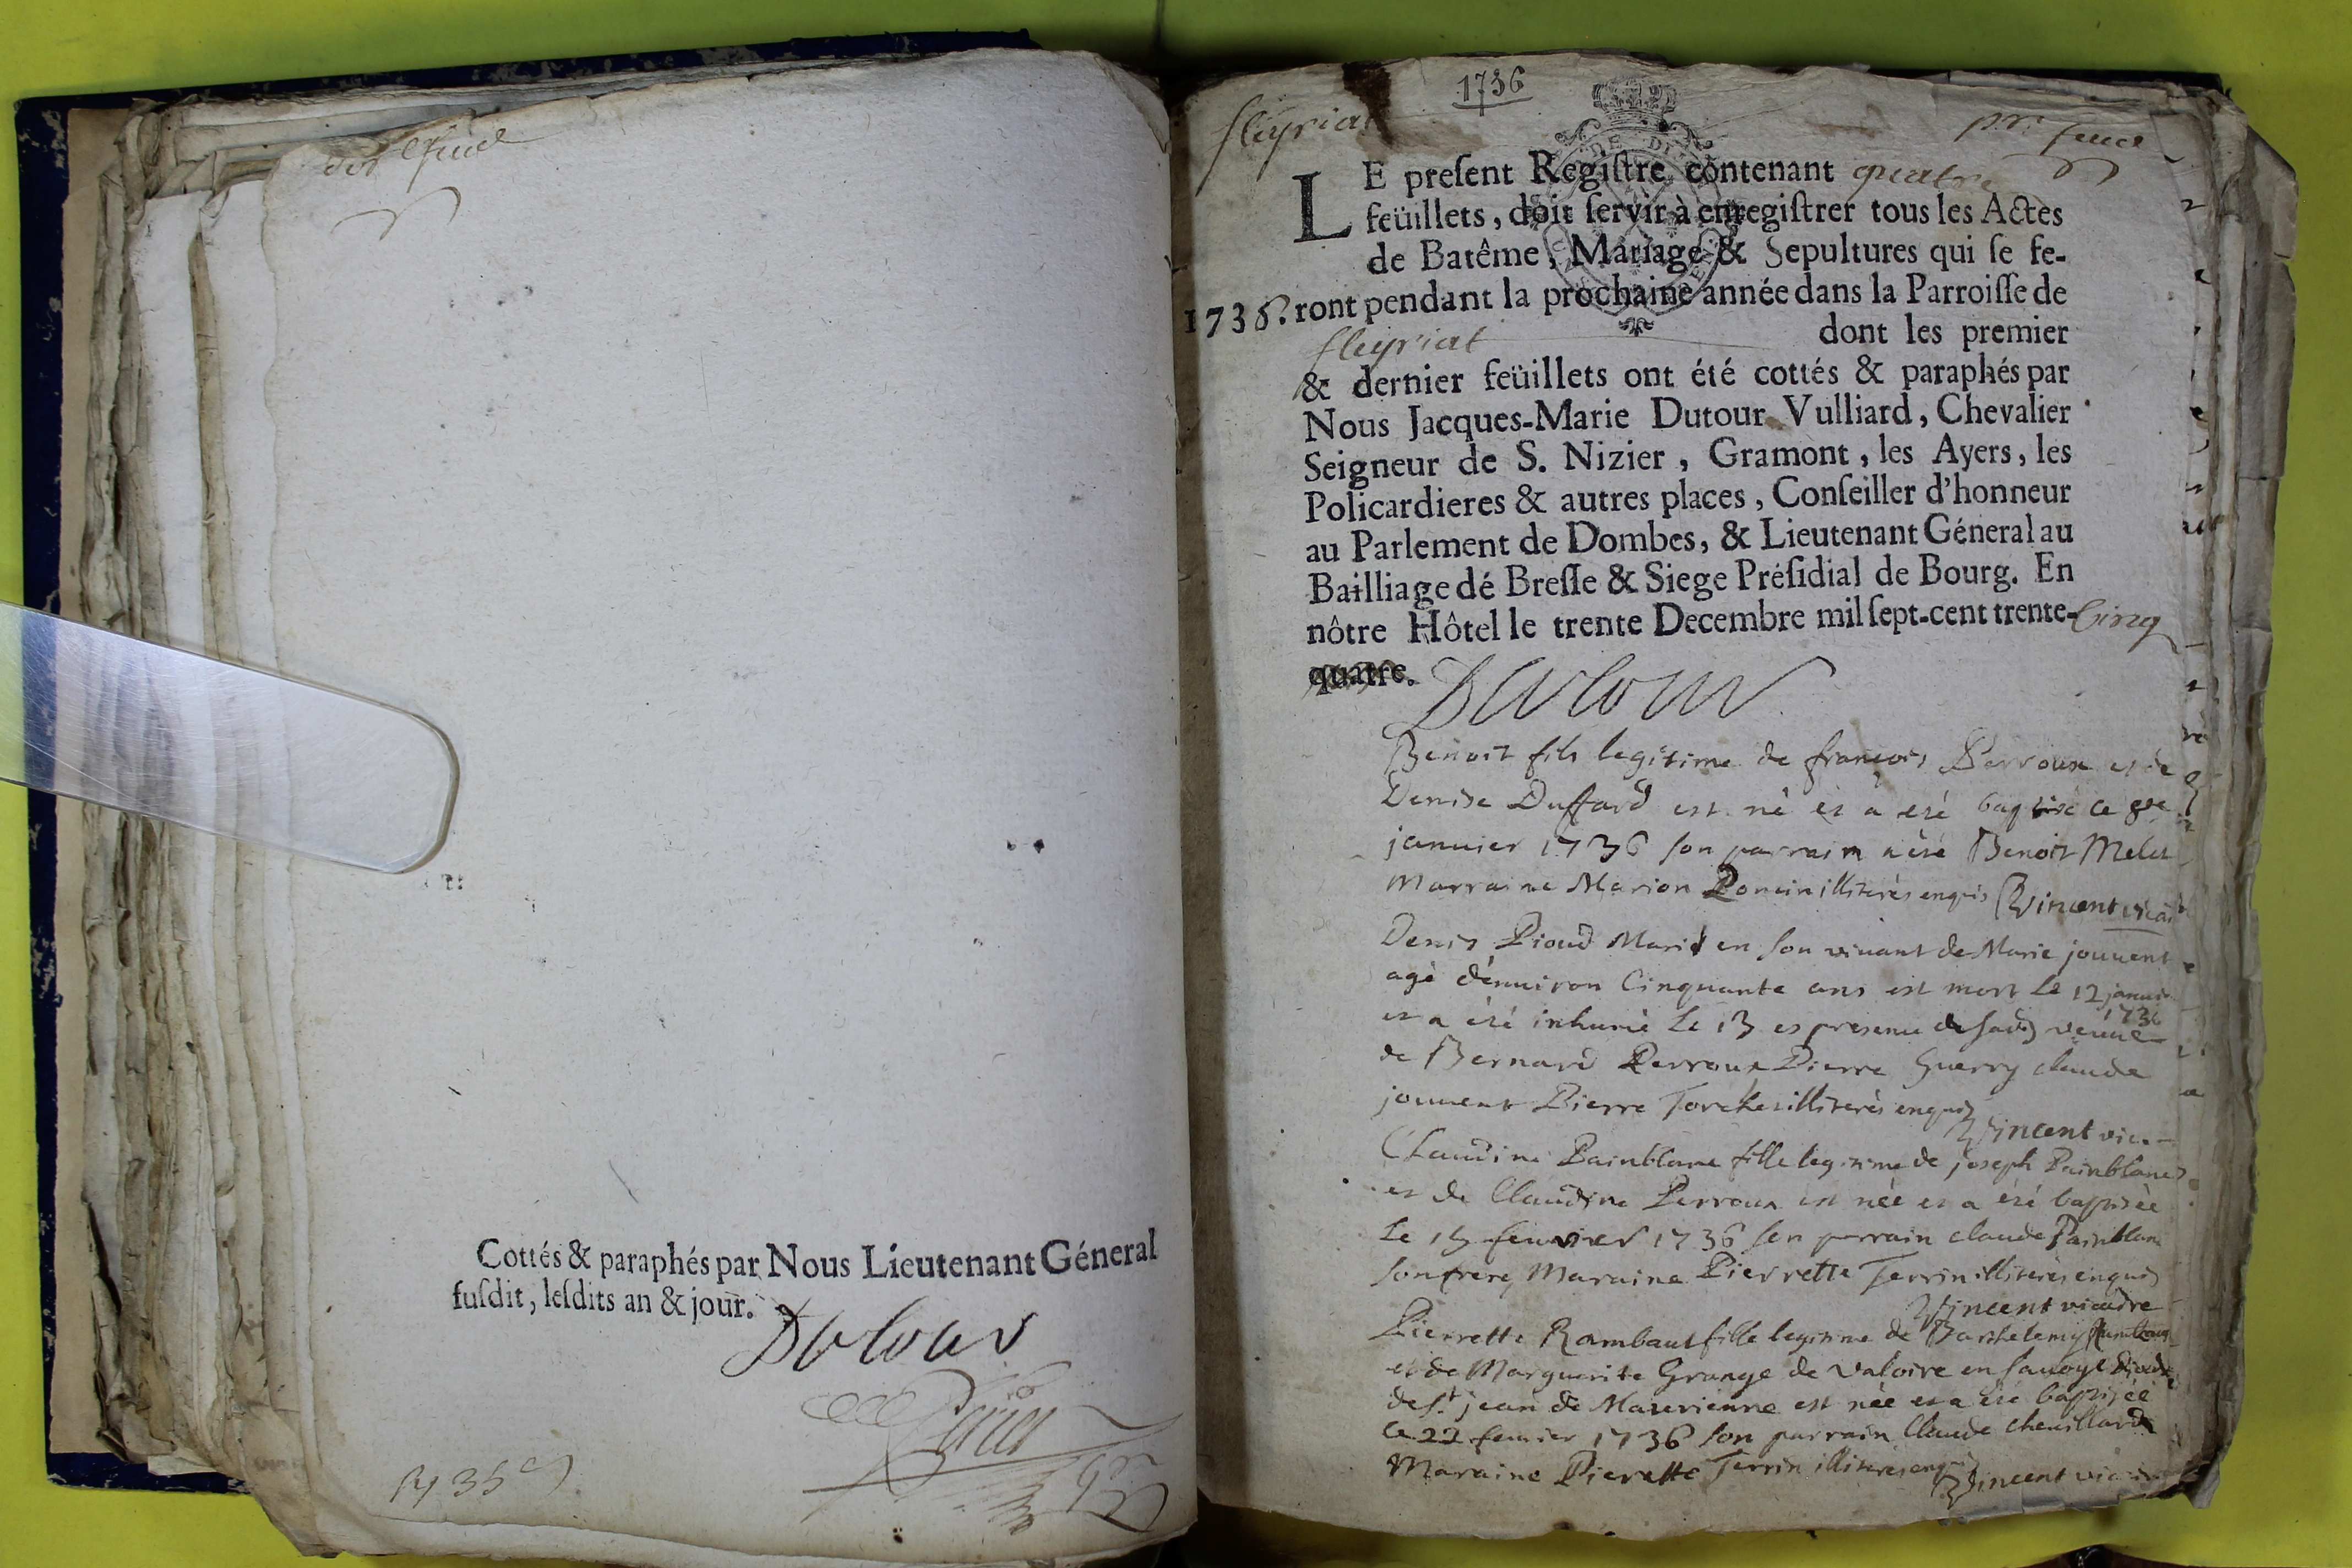 der feuil
Cottés & paraphés par Nous Lieutenant Géneral
ſuſdit, leſdits an & jour.
Dutour
1736
fleyriat
pr. feuil
LE preſent Regiſtre contenant quatre
feüillets, doit ſervir à enregiſtrer tous les Actes
de Batême, Mariage & Sepultures qui ſe fe-
1736. ront pendant la prochaine année dans la Parroiſſe de
fleyriat dont les premier
& dernier feüillets ont été cottés & paraphés par
Nous Jacques-Marie Dutour Vulliard, Chevalier
Seigneur de S. Nizier, Gramont, les Ayers, les
Policardieres & autres places, Conſeiller d'honneur
au Parlement de Dombes, & Lieutenant Géneral au
Bailliage dé Breſſe & Siege Préſidial de Bourg. En
nôtre Hôtel le trente Decembre mil ſept-cent trente-Cinq
quatre.
Dutour
Benoit fils legitime de francois Perroux et de
Denise Duffard est né et a eté baptisé ce
januier 1736 son parrain a eté Benoit
Marraine Marion Poncin illiterés enquis Vincent vicai
Denis Pioud Mari en son viuant de Marie jouuent
agé d'enuiron Cinquante ans est mort Le 12 januie
1736
et a eté inhumé Le 13 es presence de veuue
de Bernard Perroux Pierre Guerry claude
jouuent Pierre illiterés enquis
Vincent vic.
Claudine Painblanc fille legitime de joseph Painblanc
et de Claudine Perroux est née et a eté baptisée
Le feurier 1736 son parrain claude Painblanc
son frere Maraine Pierrette Terrin illiterés enquis
Vincent vicaire
Pierrette Rambaut fille legitime de Barthelemy Rambaut
et de Marguerite Grange de valoire en sauoye
de St jean de Maurienne est née et a eté baptisée
Ce 22 feurier 1736 son parrain Claude cheuillard
Maraine Pierette Terrin illiterés enquis
Vincent vicaire